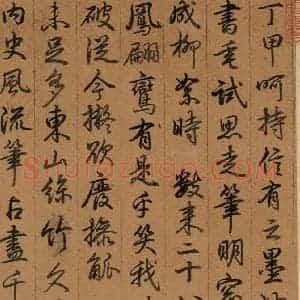 丁甲呵持信有之墨
書試思走筆明窗
成柳絮時 數來二十
鳳翩鸞有是乎笑我
破從今擬欲屢操觚
未足多東山絲竹久
內史風流筆占盡千